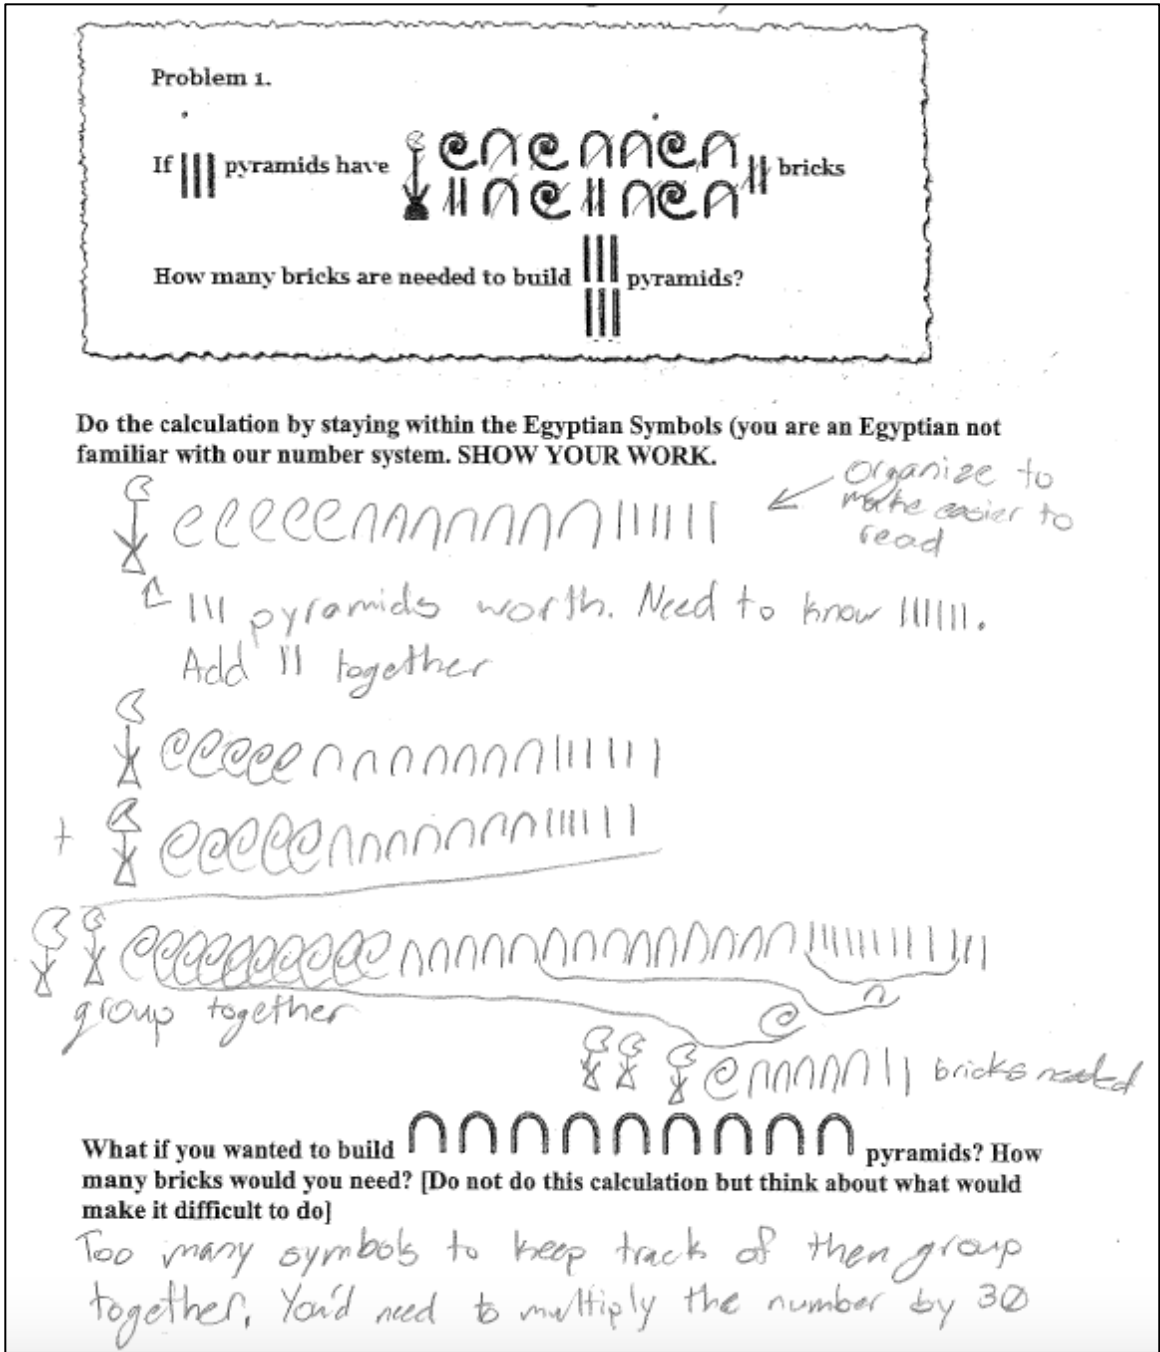 Problem 1.
If ||| pyramids have bricks
How many bricks are needed to build |||||| pyramids?
Do the calculation by staying within the Egyptian Symbols (you are an Egyptian not
familiar with our number system. SHOW YOUR WORK.
organize to
make easier to
read
||| pyramids worth. Need to know ||||||.
Add || together
+
group together
bricks needed
What if you wanted to build ∩∩∩∩∩∩∩∩∩ pyramids? How
many bricks would you need? [Do not do this calculation but think about what would
make it difficult to do]
Too many symbols to keep track of then group
together. You'd need to multiply the number by 30